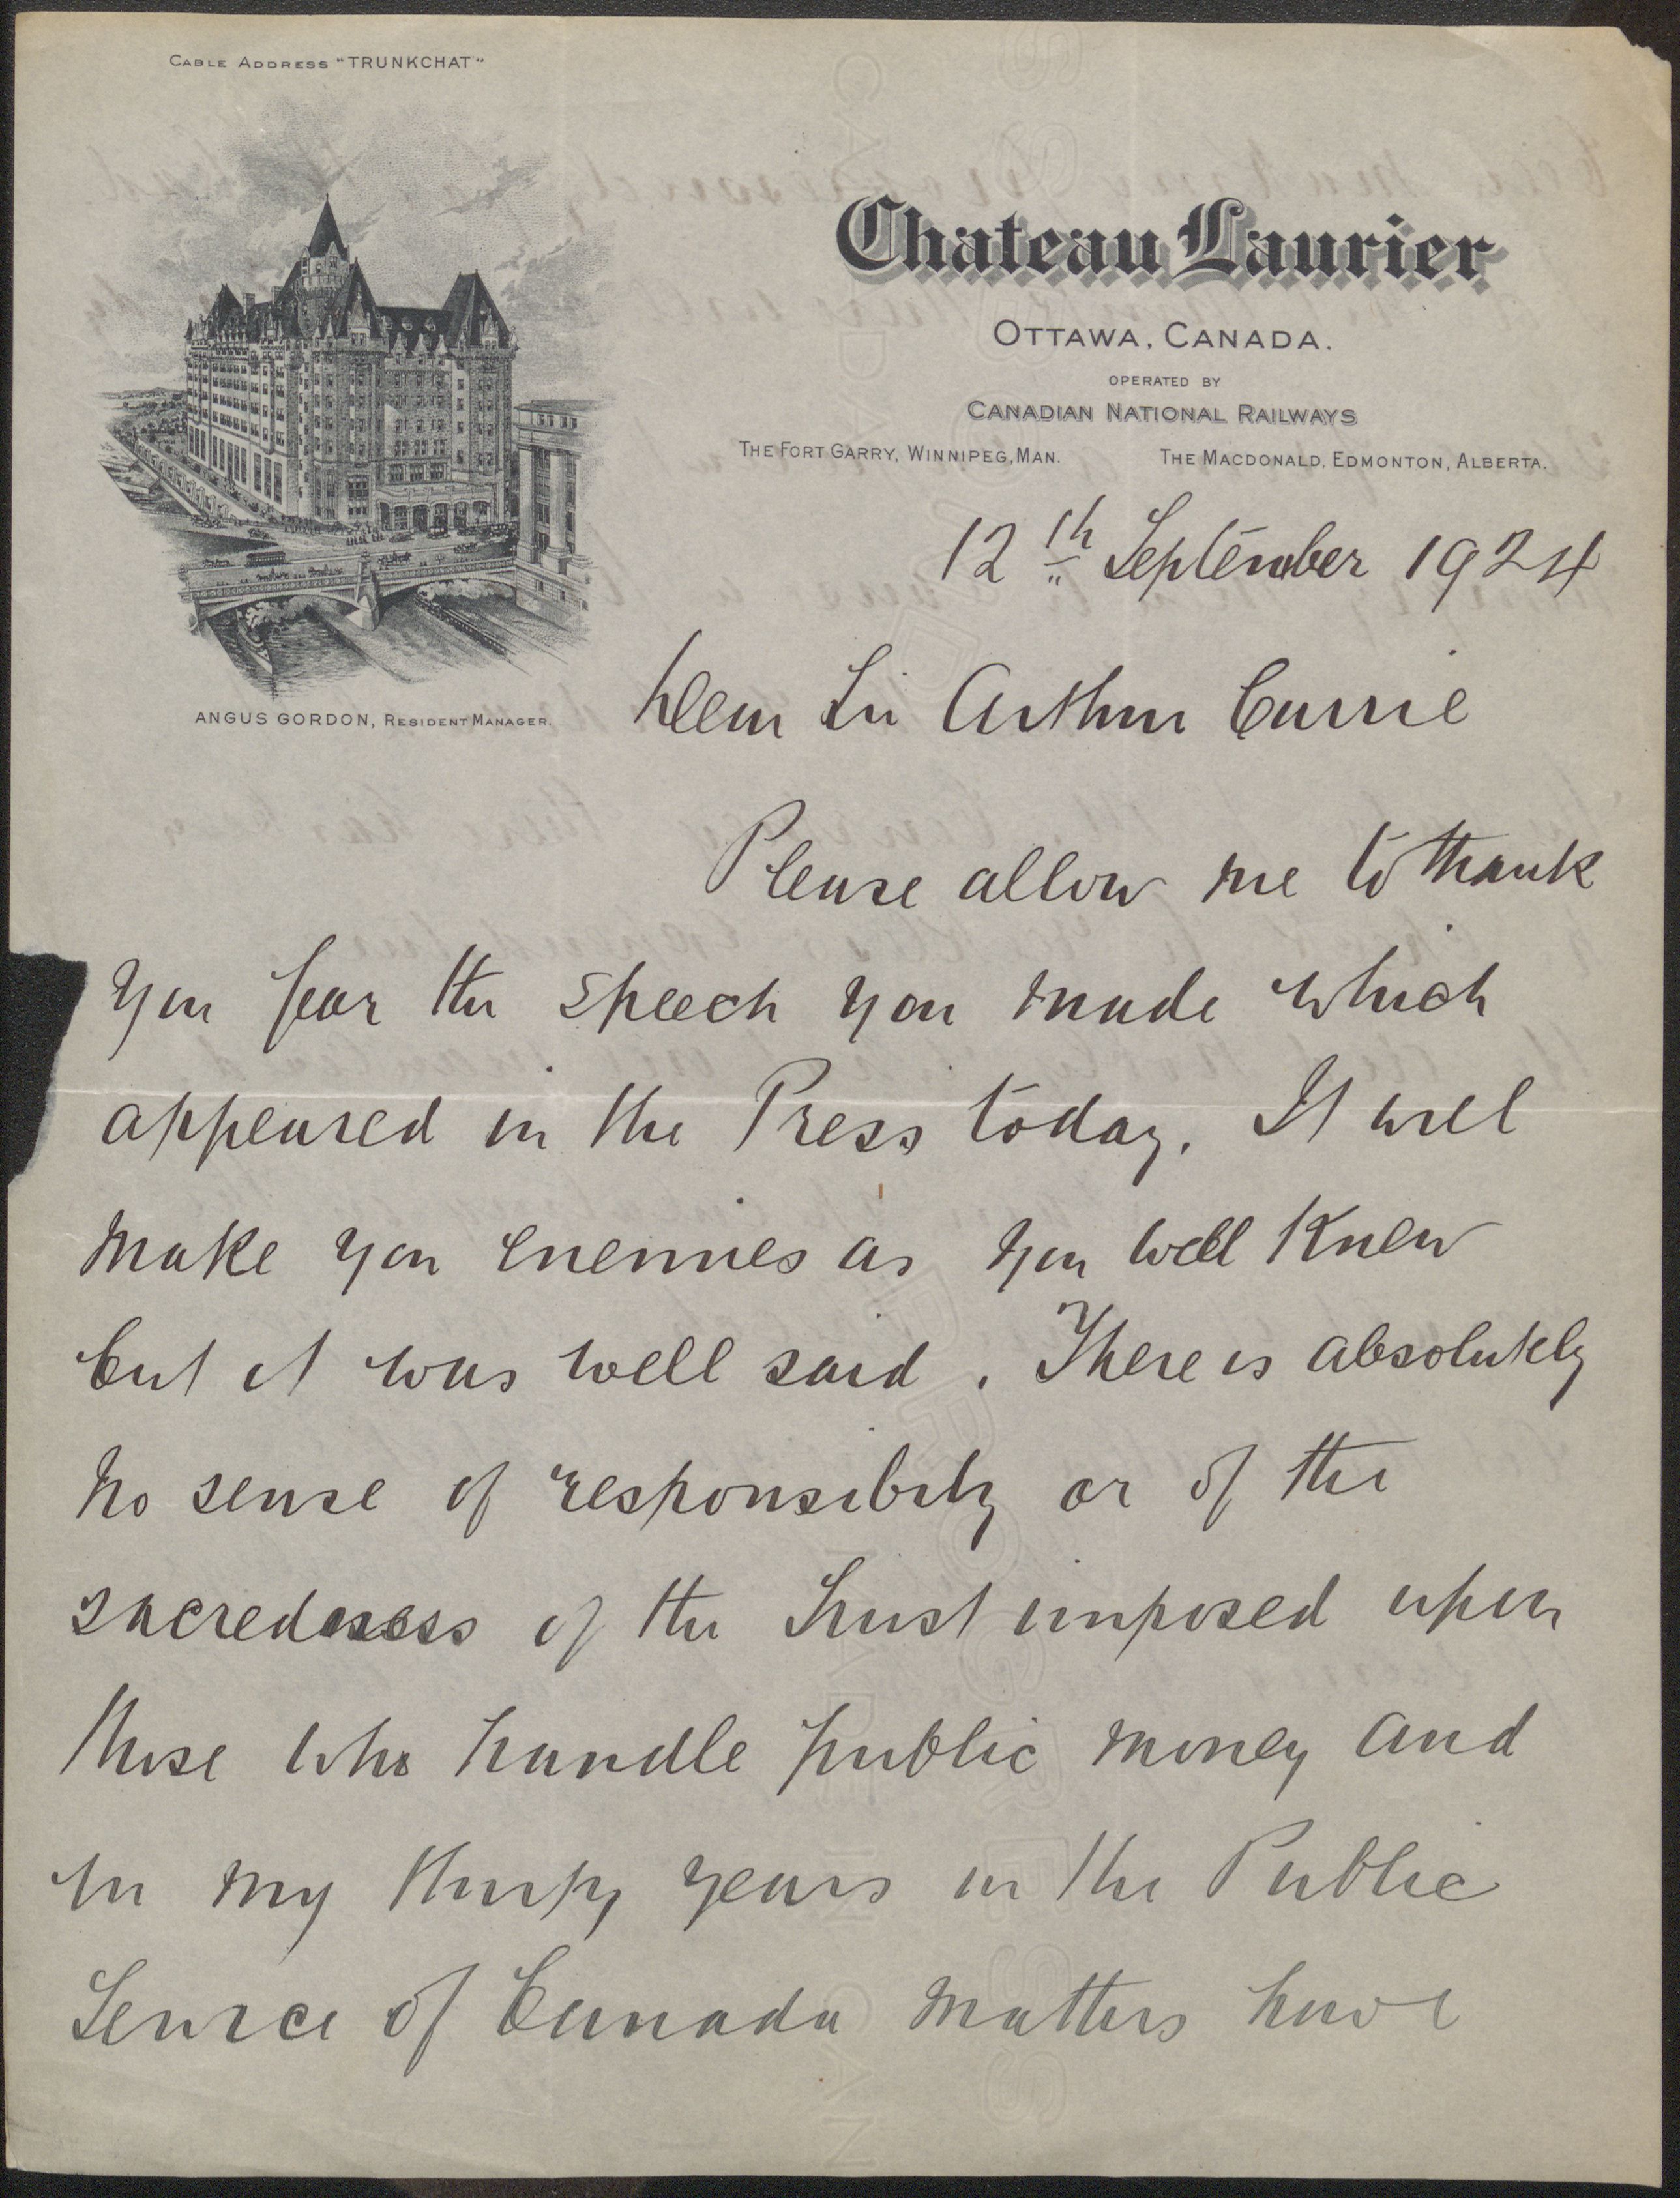 CABLE ADDRESS "TRUNKCHAT"
Chateau Laurier
OTTAWA, CANADA.
OPERATED BY
CANADIAN NATIONAL RAILWAYS
THE FORT GARRY, WINNIPEG, MAN. THE MACDONALD, EDMONTON, ALBERTA.
ANGUS GORDON, RESIDENT MANAGER.
12th September 1924
Dear Sir Arthur Currie
Please allow me to thank
you foor the speech you made which
appeared in the Press today. It will
make you enemies as you well knew
but it was well said. There is absolutely
no sense of responsibity or of the
sacredness of the trust imposed upon
those who handle public money and
in my thirty years in the Public
Service of Canada matters have